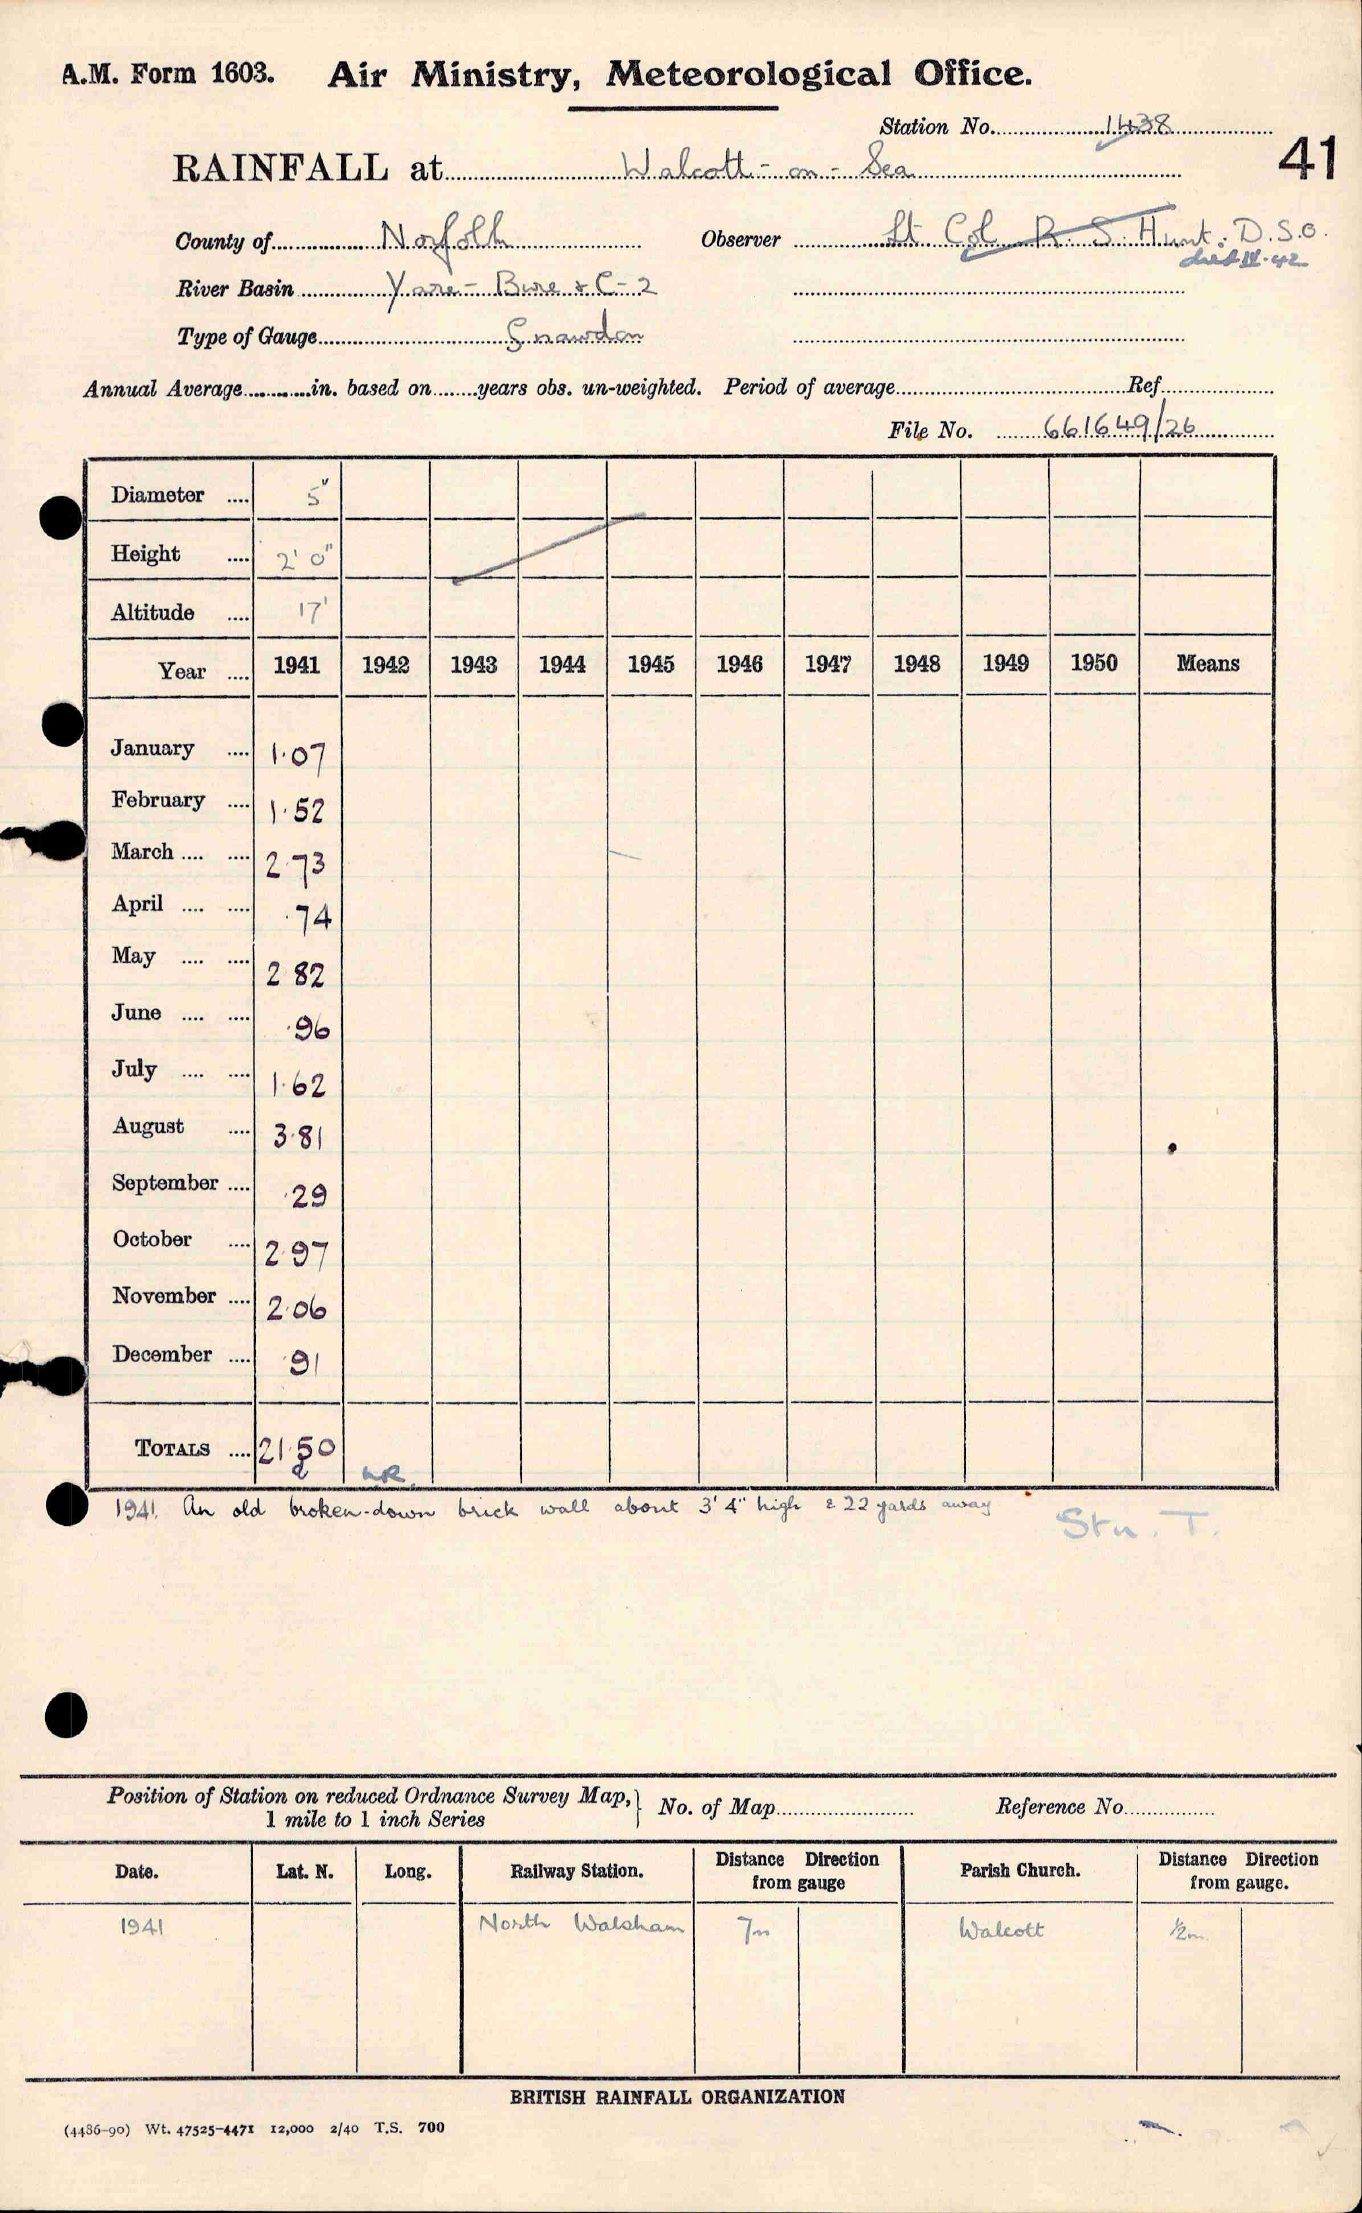 A.M. Form 1603. Air Ministry, Meteorological Office.
Station No. 1438
41
RAINFALL at Walcott-on-Sea
County of Norfolk Observer Lt Col R. S. Hunt. D.S.O.
died IV.42
River Basin Yare-Bure & C-2
Type of Gauge Snowdon
Annual Average in. based on years obs. un-weighted. Period of average Ref.
File No. 661649/26
Diameter 5"
Height 2' 0"
Altitude 17'
Year 1941 1942 1943 1944 1945 1946 1947 1948 1949 1950 Means
January 1.07
February 1.52
March 2.73
April .74
May 2 82
June .96
July 1.62
August 3.81
September .29
October 2.97
November 2.06
December .91
TOTALS 21.50
1941. An old broken-down brick wall about 3' 4" high & 22 yards away
Stn. T.
Position of Station on reduced Ordnance Survey Map, 1 mile to 1 inch Series No. of Map Reference No.
Date. Lat. N. Long. Railway Station. Distance Direction from gauge Parish Church. Distance Direction from gauge.
1941 North Walsham 7m Walcott ½m
BRITISH RAINFALL ORGANIZATION
(4486-90) Wt. 47525-4471 12,000 2/40 T.S. 700